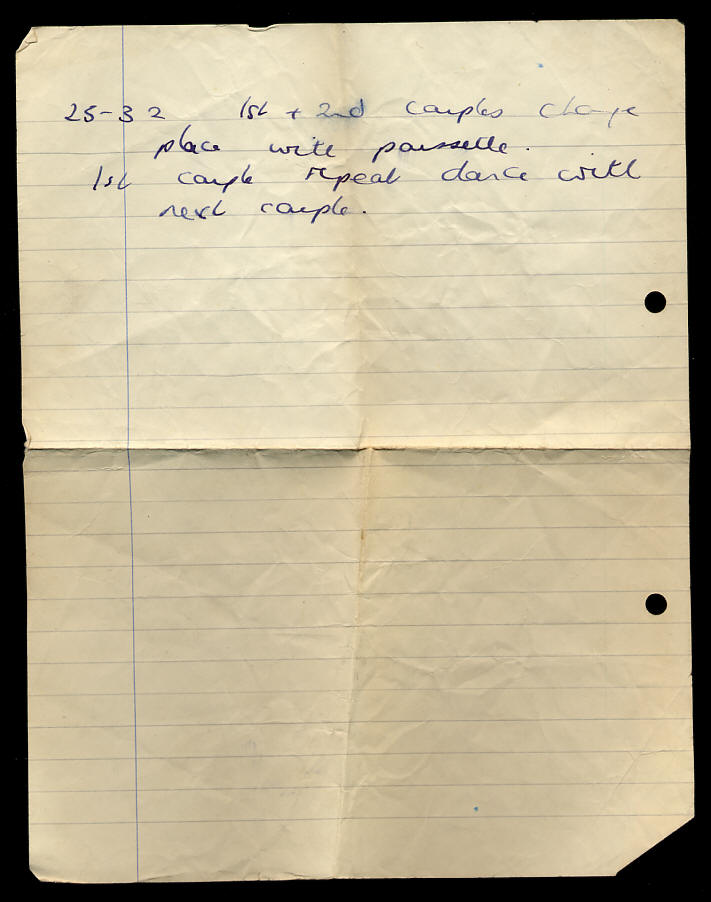 25-32 1st + 2nd couples change
place with poussette.
1st couple repeat dance with
next couple.